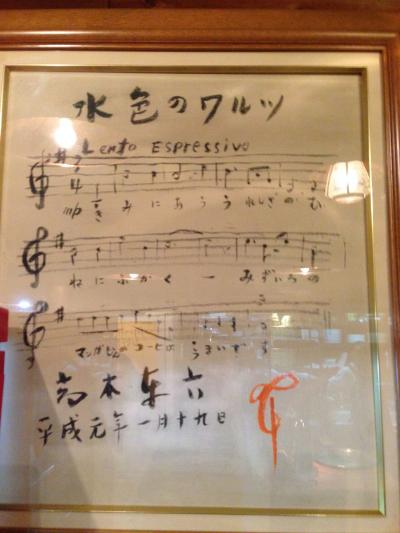 水色のワルツ
Lento Espressivo
mp きみにあううれしさのむ
ねにふかくーみずいろの
コーヒは うまいです
高木東六
平成元年一月十九日